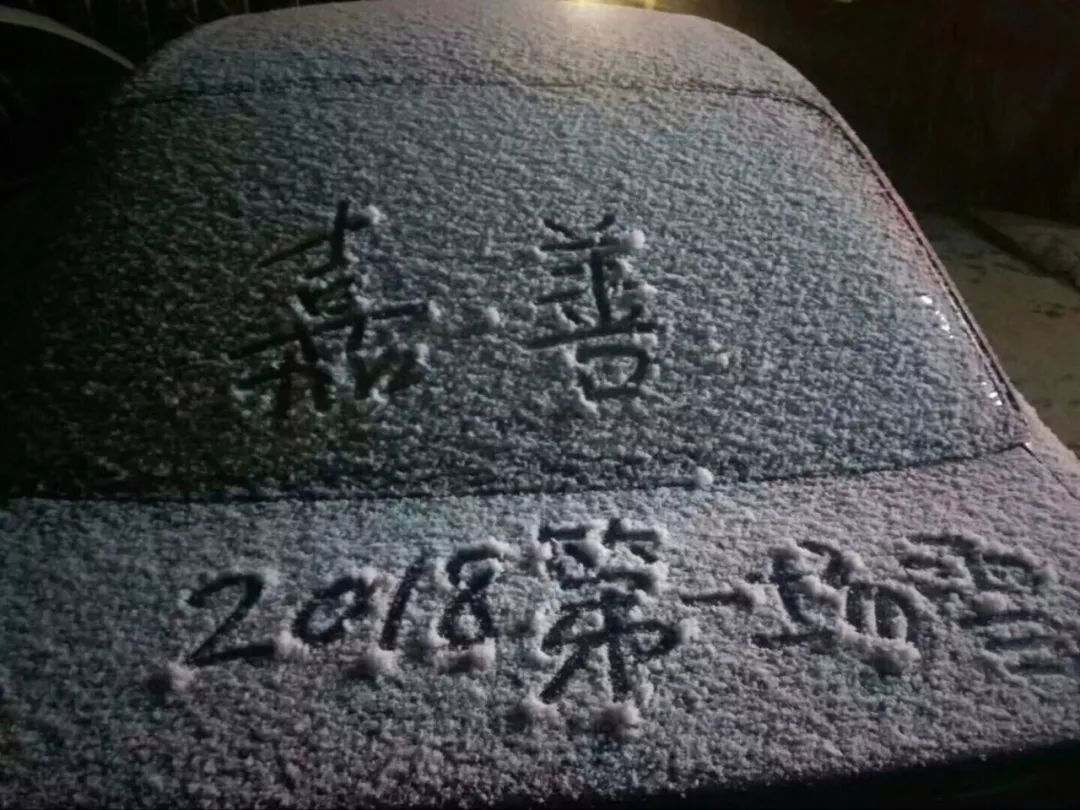 嘉善
2018第一场雪